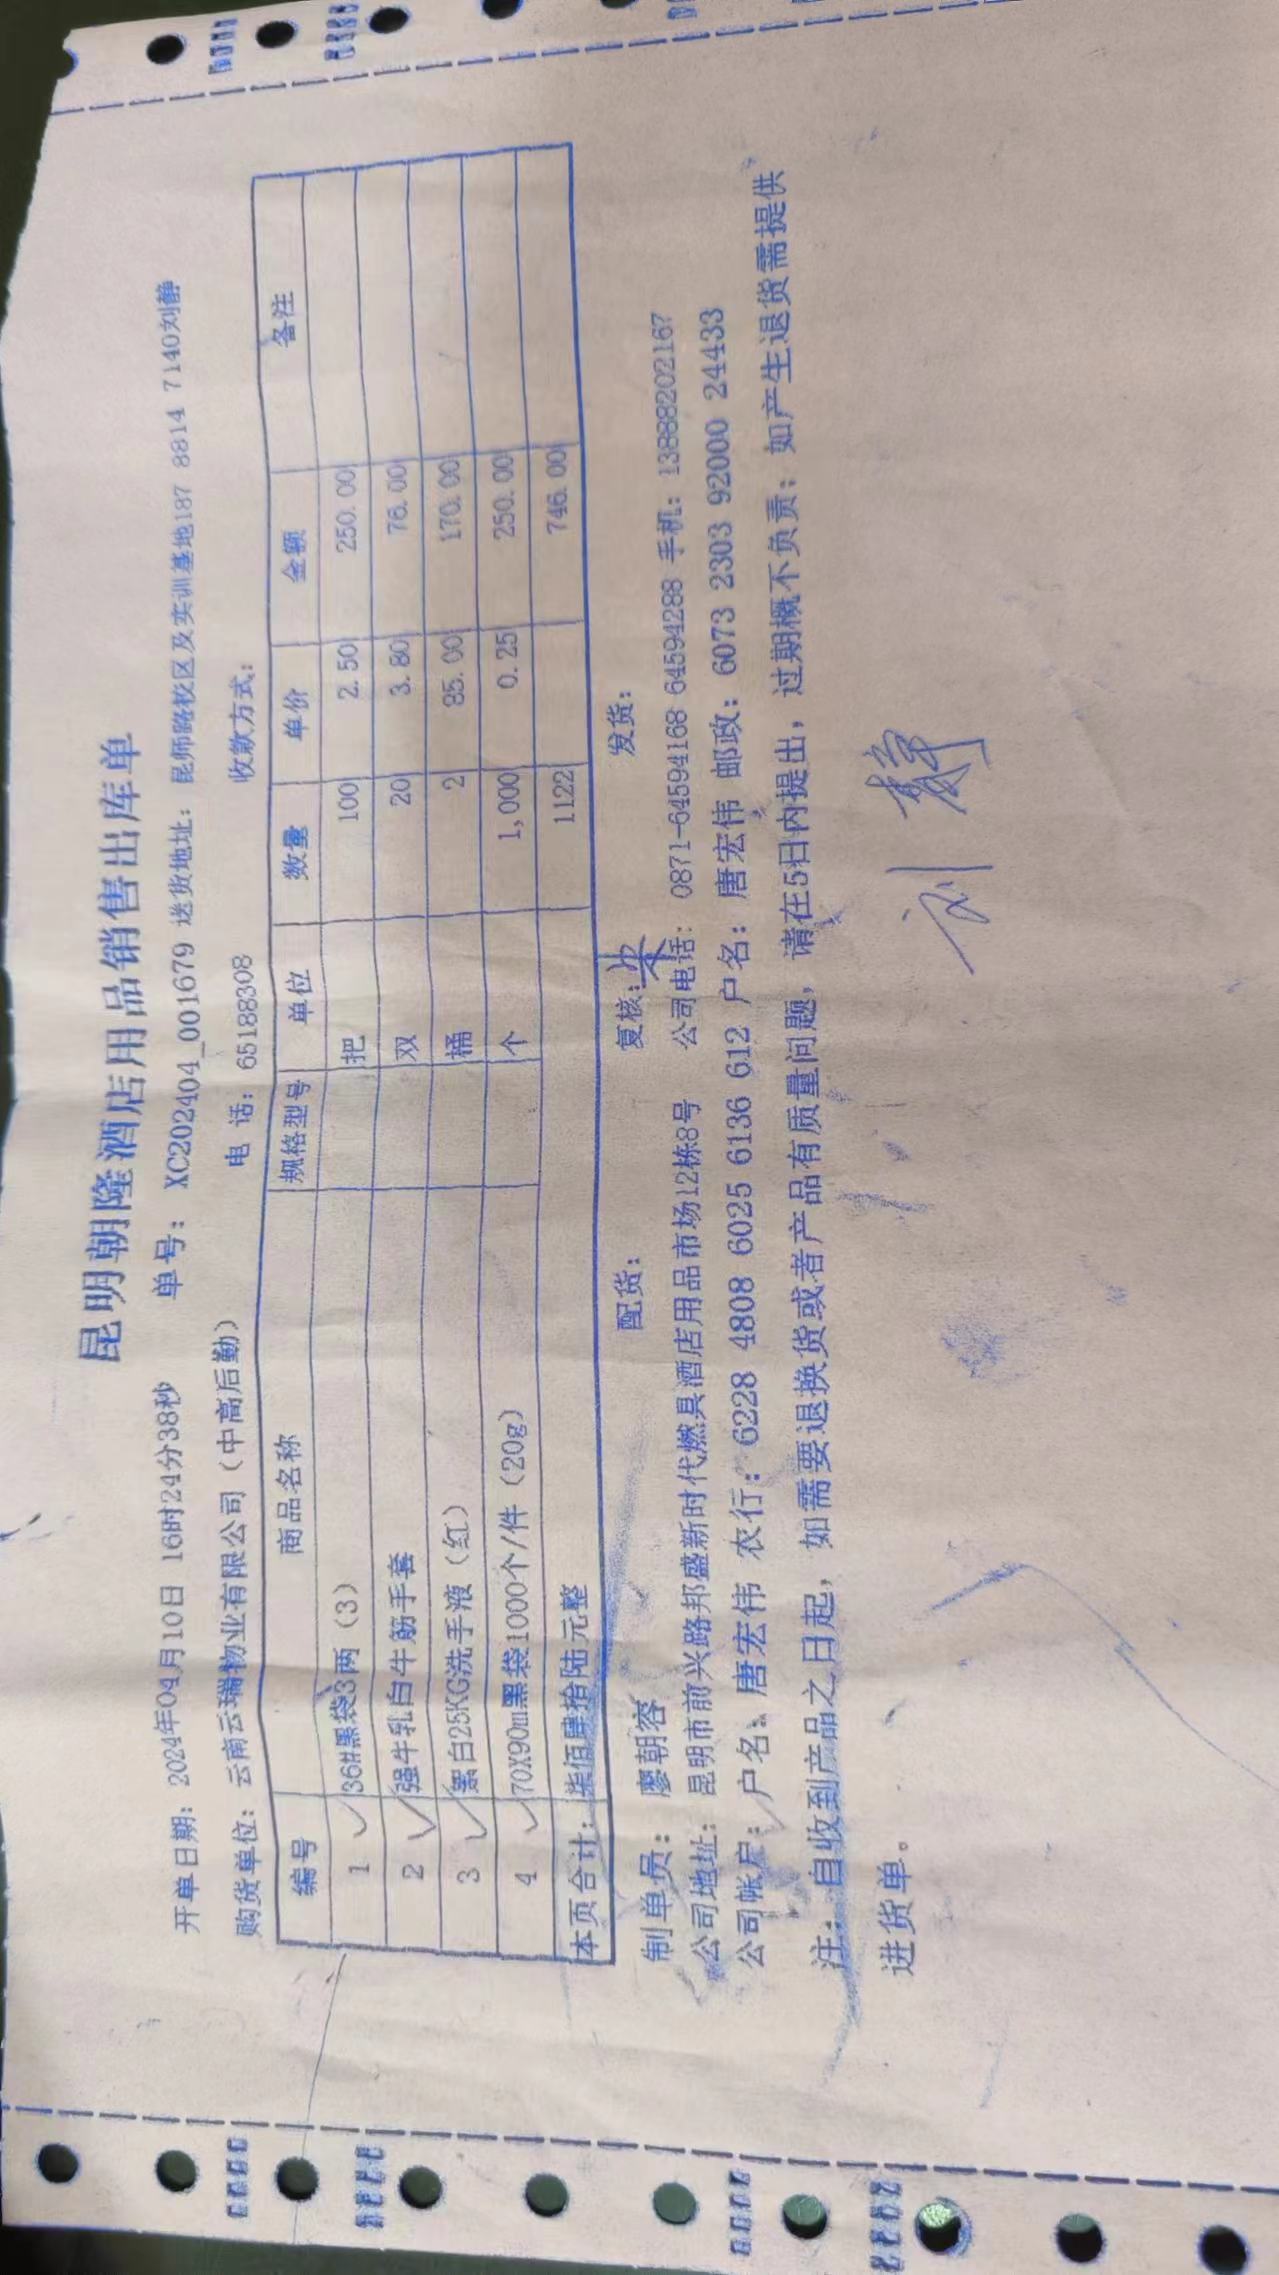 昆明朝隆酒店用品销售出库单
开单日期: 2024年04月10日 16时24分38秒 单号: XC202404_001679 送货地址: 昆师路校区及实训基地187 8814 7140刘静
购货单位: 云南云瑞物业有限公司（中高后勤） 电 话: 65188308 收款方式:
编号 商品名称 规格型号 单位 数量 单价 金额 备注
1 36#黑袋3两（3） 把 100 2.50 250.00
2 强牛乳白牛筋手套 双 20 3.80 76.00
3 絮白25KG洗手液（红） 桶 2 85.00 170.00
4 70X90m黑袋1000个/件（20g） 个 1,000 0.25 250.00
本页合计: 柒佰肆拾陆元整 1122 746.00
制单员: 廖朝容 配货: 复核: 发货:
公司地址: 昆明市前兴路邦盛新时代燃具酒店用品市场12栋8号 公司电话: 0871-64594168 64594288 手机: 13888202167
公司帐户: 户名: 唐宏伟 农行: 6228 4808 6025 6136 612 户名: 唐宏伟 邮政: 6073 2303 92000 24433
注: 自收到产品之日起, 如需要退换货或者产品有质量问题, 请在5日内提出, 过期概不负责; 如产生退货需提供
进货单。
刘静